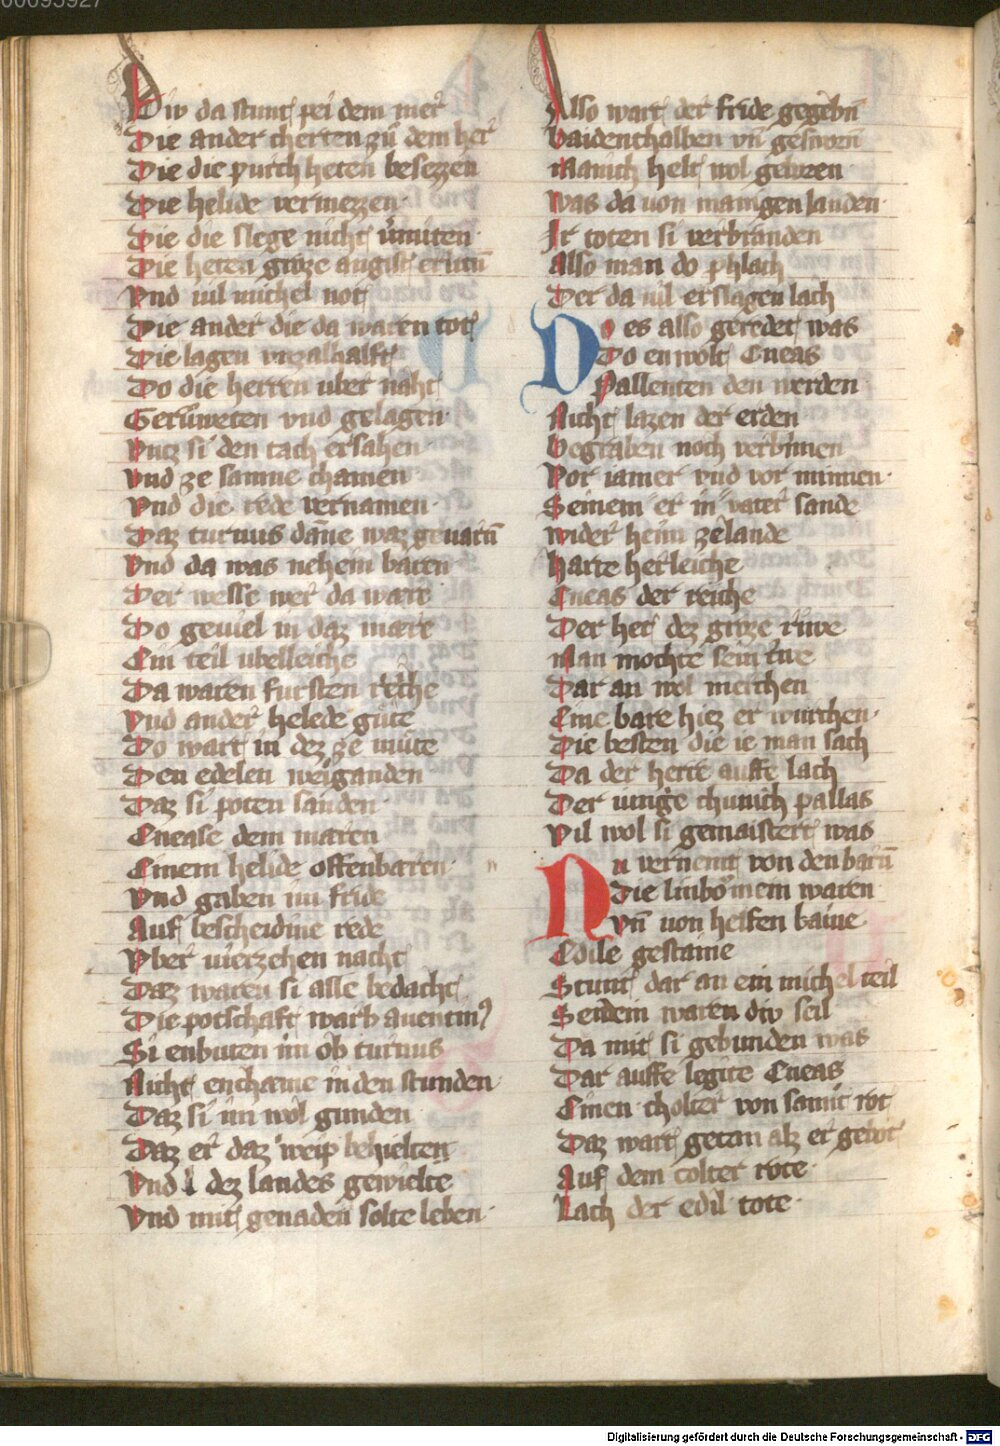 00095927
Div da stunt pei dem mer
Die ander cherten zů dem her
Die die purch heten besezzen
Die helide vermezzen
Die die slege nicht v̄miten
Die heten groze angist erlitn̄
Vnd uil michel not
Die ander die da waren tot
Die lagen vnzalhaft
Do die herren uber naht
Gerůweten vnd gelagen
Vntz si den tach ersahen
Vnd ze samne chamen
Vnd die rede vernamen
Daz turnus dāne waz geuarn̄
Vnd da was nehein baren
Der wesse wer da ware
Do geuiel in daz mare
Ein teil ubelleiche
Da waren fursten reiche
Vnd ander helede gůte
Do wart in dez ze můte
Den edelen weiganden
Daz si poten sanden
Enease dem maren
Einem helide offenbaren
Vnd gaben im fride
Auf bescheidine rede
Vber uierzehen nacht
Daz waren si alle bedacht
Die potschaft warb auentin9
Si enbuten im ob turnus
Nicht enchæme in den stunden
Daz si im wol gunden
Daz er daz weip behielten
Vnd dez landes gewielte
Vnd mit genaden solte leben
Also wart der fride gegebn̄
Baidenthalben vn̄ gesworn
Manich helt wol geboren
Was da uon manigen landen
Ir toten si verbranden
Also man do phlach
Der da uil erslagen lach
Do es also geredet was
Do enwolt Eneas
Pallenten den werden
Nicht lazen der erden
Begraben noch verbrinnen
Vor iamer vnd vor minnen
Seinem er in vater sande
wider heim ze lande
harte herleiche
Eneas der reiche
Der het dez groze riwe
Man mochte sein triwe
Dar an wol merchen
Eine bare hiez er wurchen
Die besten die ie man sach
Da der herre auffe lach
Der iunge chunich pallas
Vil wol si gemaistert was
Nu vernemt von den barn̄
Die linbǒmein waren
Vn̄ uon helfen baine
Edile gestaine
Stunt dar an ein michel teil
Seidein waren div seil
Da mit si gebunden was
Dar auffe legite Eneas
Einen cholter von samit rot
Daz wart getan alz er gebot
Auf dem colter rote
Lach der edil tote
Digitalisierung gefördert durch die Deutsche Forschungsgemeinschaft - DFG